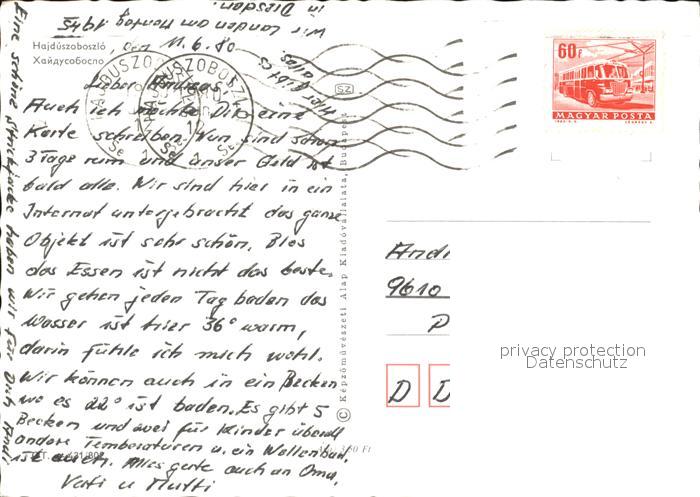 Hajdúszoboszló, den 11.6.80
Хайдусобосло
Lieber Andreas
Auch ich möchte Dir eine
Karte schreiben. Nun sind schon
3 Tage rum und unser Geld ist
bald alle. Wir sind hier in ein
Internat untergebracht das ganze
Objekt ist sehr schön. Blos
das Essen ist nicht das beste.
Wir gehen jeden Tag baden das
Wasser ist hier 36° warm,
darin fühle ich mich wohl.
Wir können auch in ein Becken
wo es 22° ist baden. Es gibt 5
Becken und zwei für Kinder überall
andere Temperaturen u. ein Wellenbad,
ist auch. Alles gute auch an Oma,
Vati u Mutti
Eine schöne haben wir für Dich
Hier gibt es alles.
Wir landen am Montag 1945
in Dresden.
HAJDUSZOBOSZLÓ
SZ
© Képzőművészeti Alap Kiadóvállalata, Budapest
60f
MAGYAR POSTA
9610
D D
privacy protection
Datenschutz